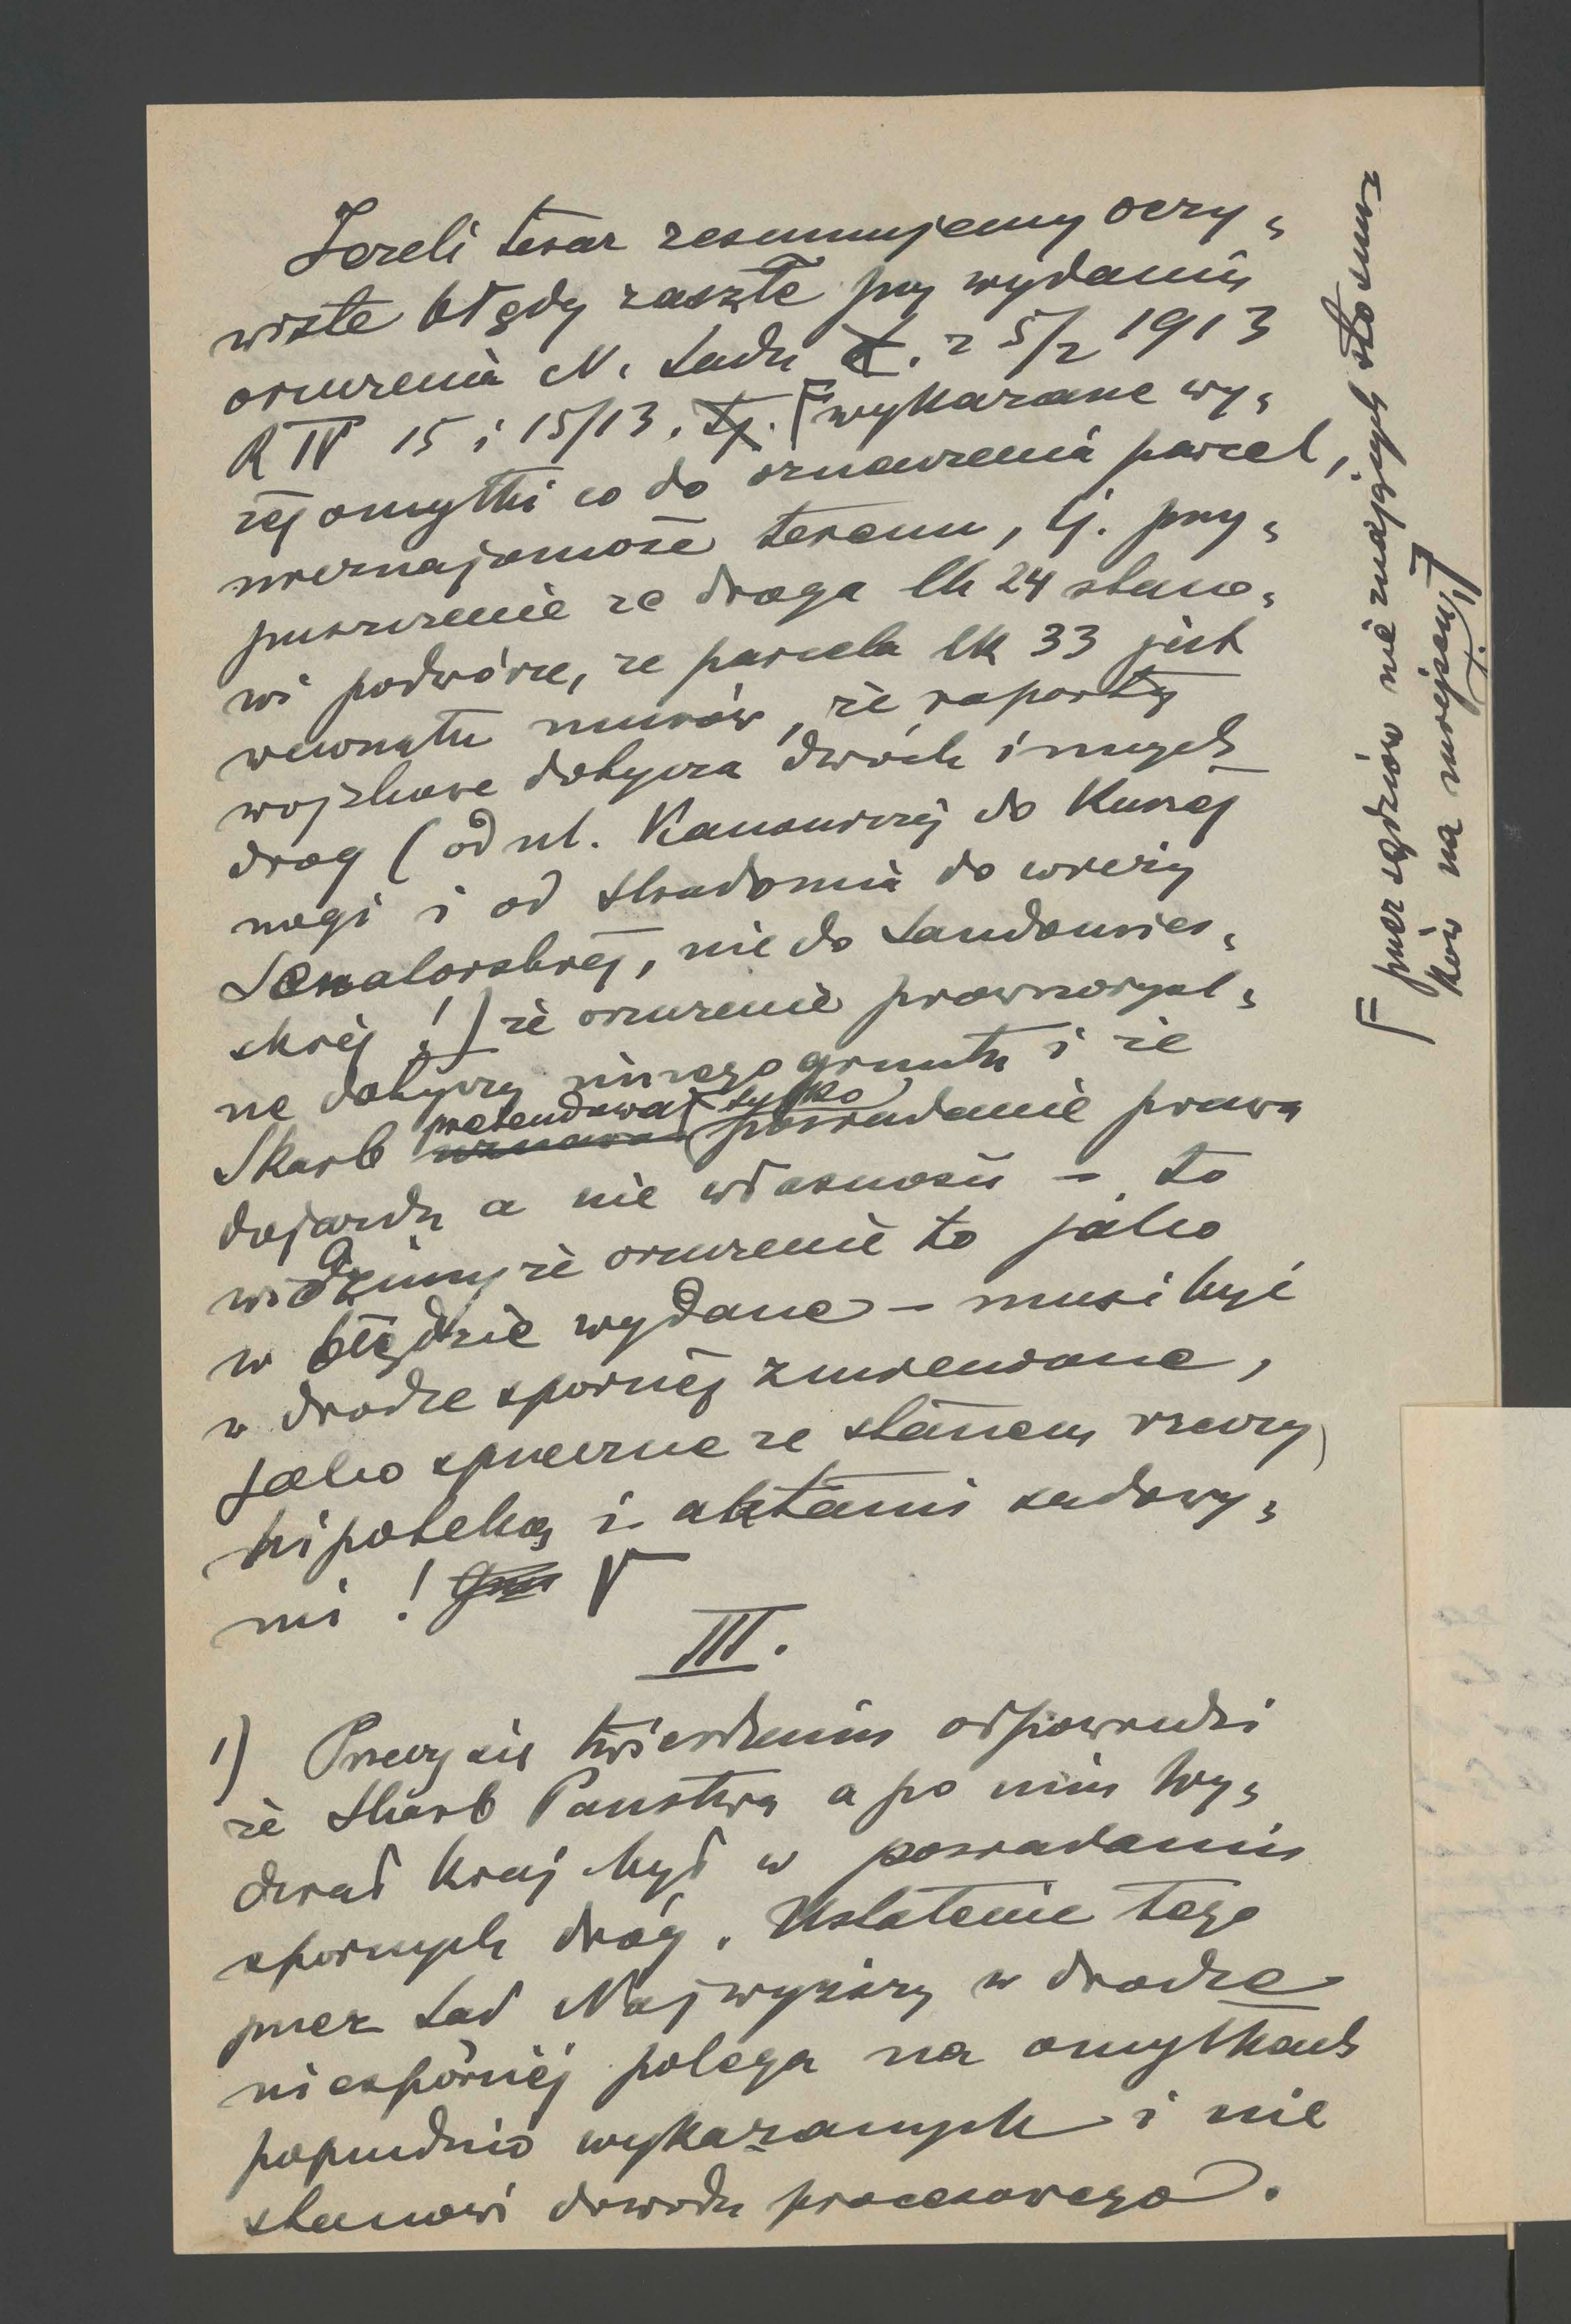 Jeżeli teraz resumujemy oczy-
wiste błędy zaszłe przy wydaniu
orzeczenia N. Sądu z 5/2 1913
R IV 15 i 15/13, wykazane wy-
żej omyłki co do oznaczenia parcel,
nieznajomość terenu, tj. przy-
puszczenie że droga lk 24 stano-
wi podwórze, że parcela lk 33 jest
wewnątrz murów, że raporty
wojskowe dotyczą dwóch innych
dróg (od ul. Kanoniczej do Kurzej
nogi i od Stradomia do wieży
Senatorskiej, nie do Sandomier-
skiej!) że orzeczenie prawomocne
ne dotyczy innego gruntu i że
Skarb pretendował tylko posiadanie prawa
dojazdu a nie własności – to
widzimy że orzeczenie to jako
w błędzie wydane – musi być
w drodze spornej zmienione,
jako sprzeczne ze stanem rzeczy,
hipoteką i aktami sądowy-
mi!
III.
1) Przeczy się twierdzeniu odpowiedzi
że Skarb Państwa a po nim Wy-
dział Kraj. był w posiadaniu
spornych dróg. Ustalenie tego
przez Sąd Najwyższy w drodze
niespornej polega na omyłkach
poprzednio wykazanych i nie
stanowi dowodu procesowego.
przez sędziów nie znających stosun-
ków na miejscu, t.j.